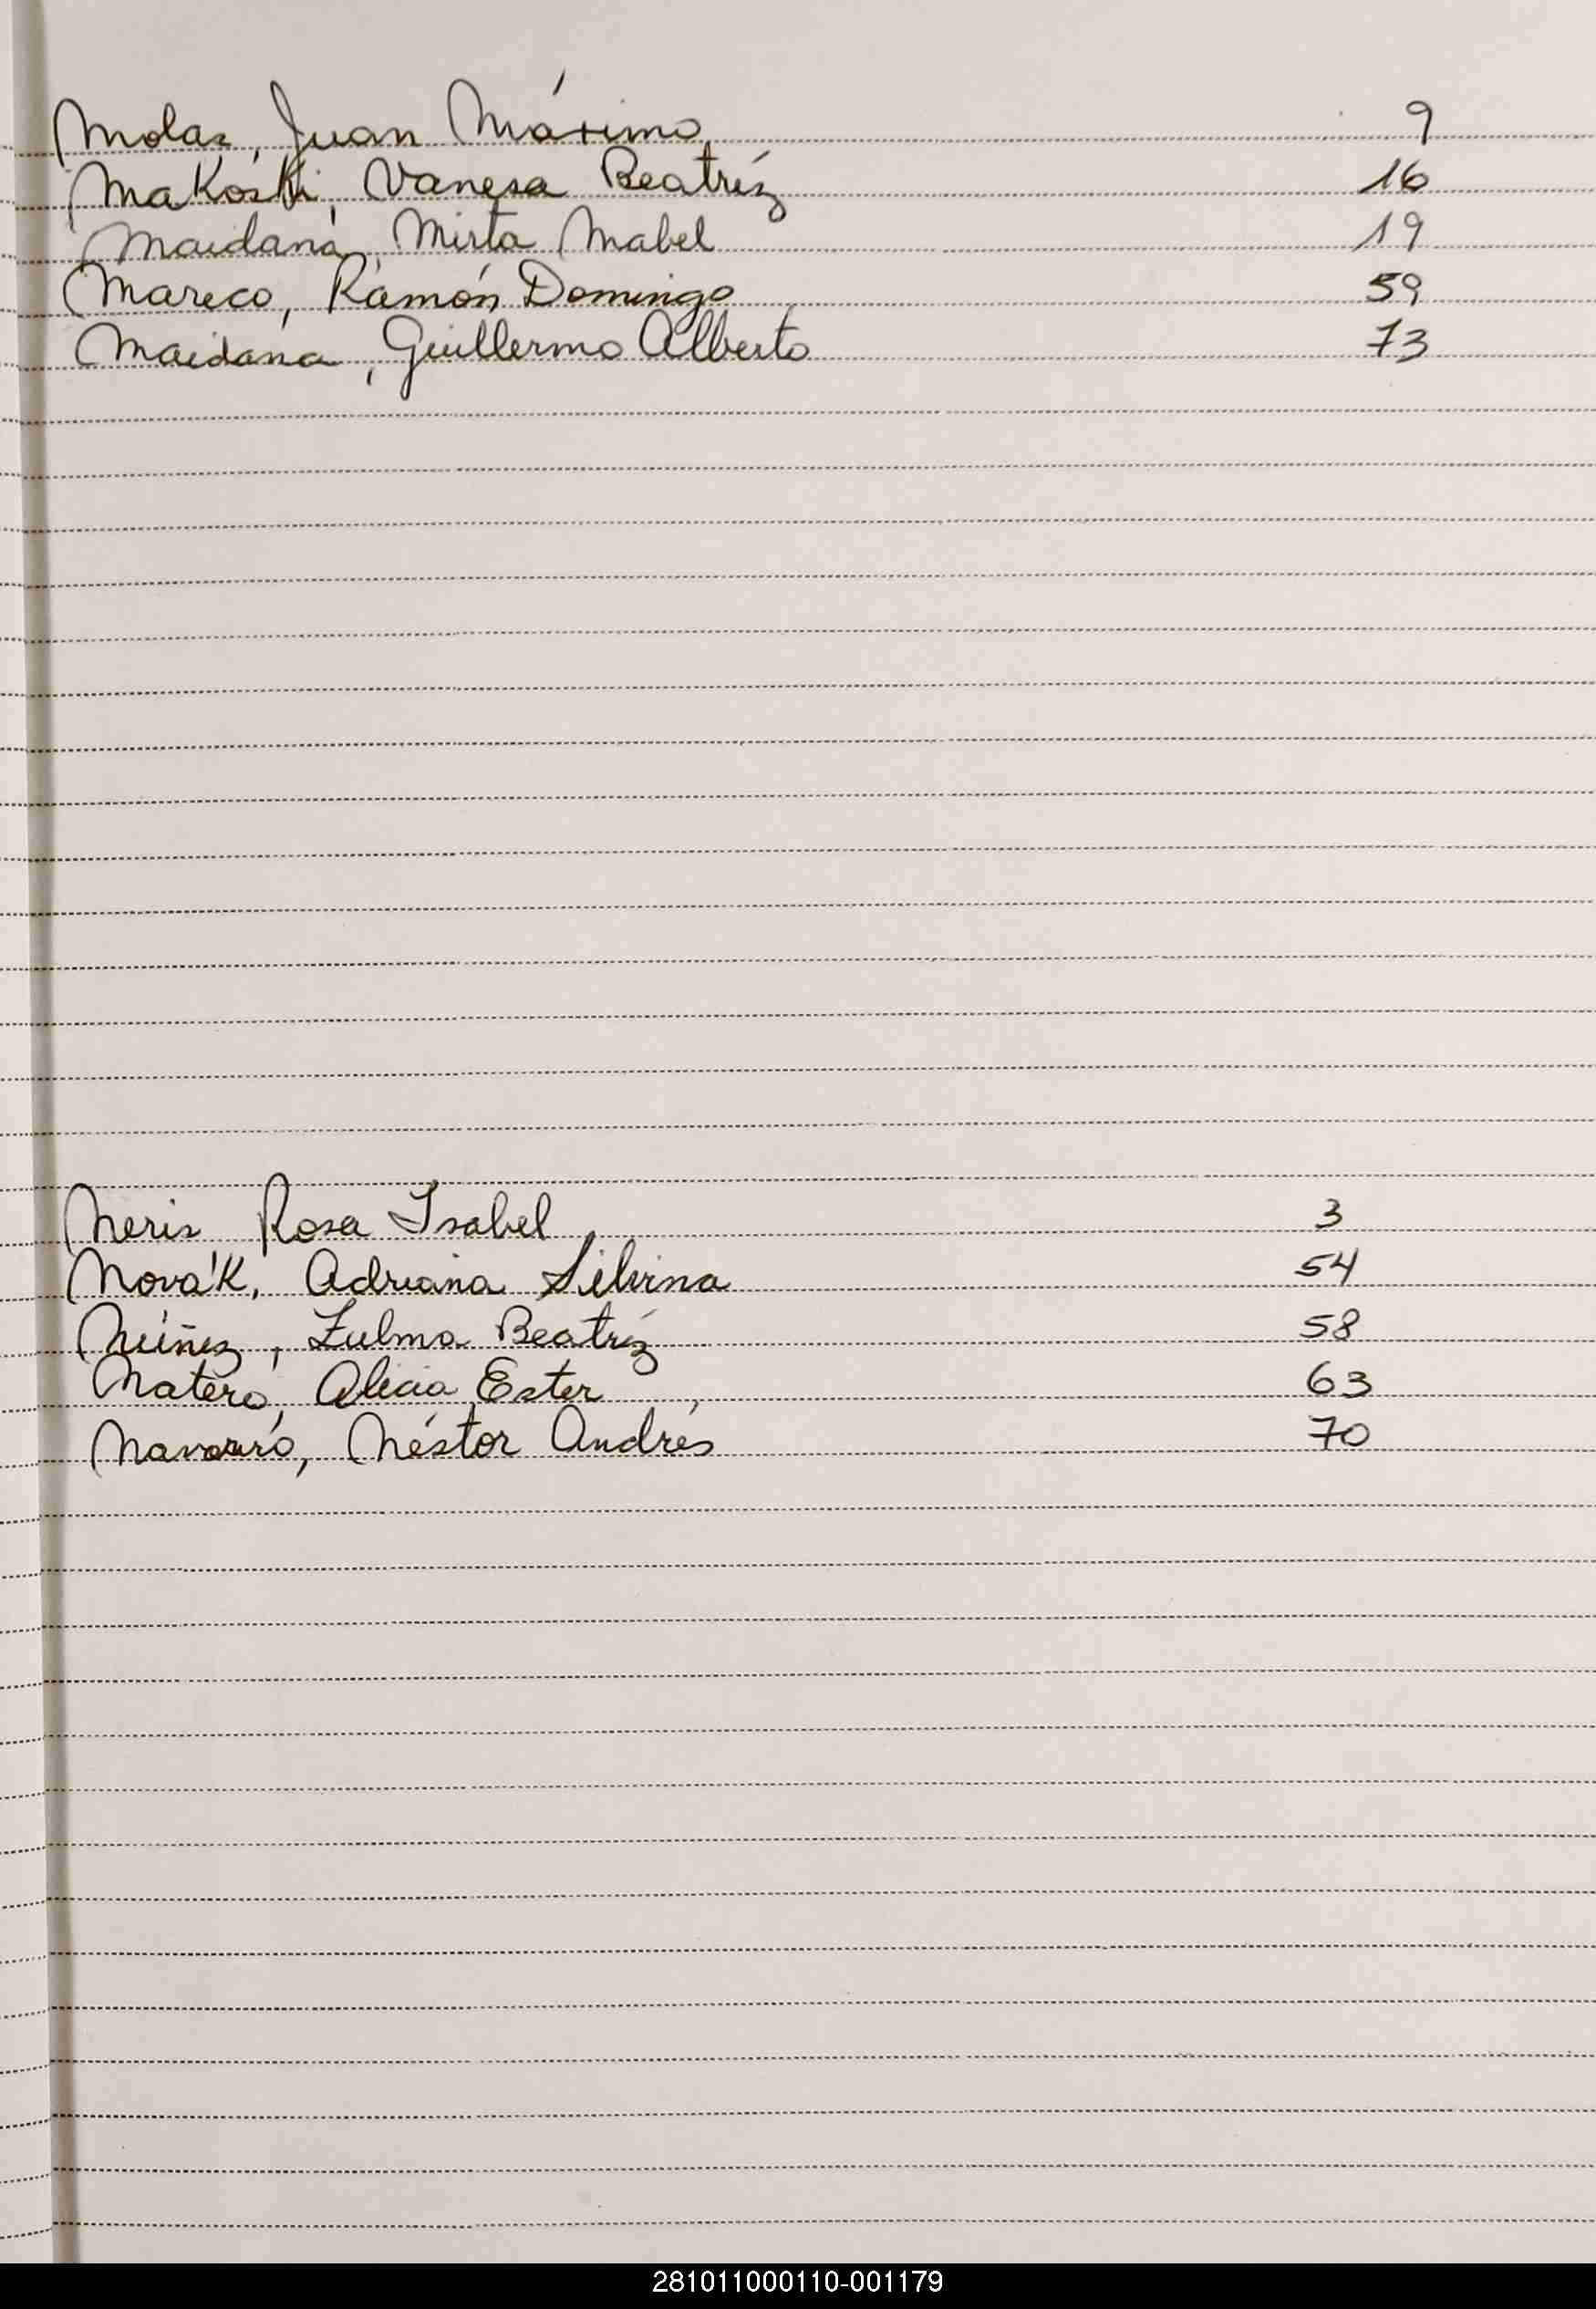 Molas, Juan Máximo 9
Makoski, Vanesa Beatríz 16
Maidana, Mirta Mabel 19
Mareco, Ramón Domingo 59
Maidana, Guillermo Alberto 73
Neris Rosa Isabel 3
Novák, Adriana Silvina 54
Núñez, Zulma Beatríz 58
Natero, Alicia Ester 63
Navarro, Néstor Andrés 70
281011000110-001179